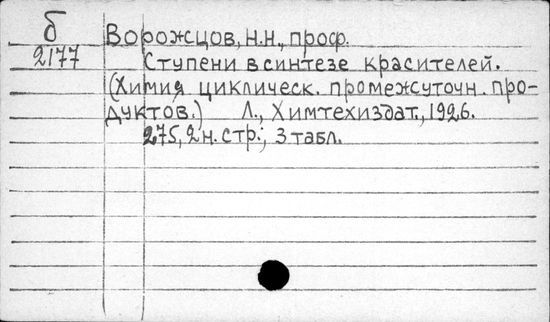 б
2177
Ворожцов, Н.Н., проф.
Ступени в синтезе красителей.
(Химия циклическ. промежуточн. про-
дуктов.) Л., Химтехиздат, 1926.
275, 2 н. стр.; 3 табл.